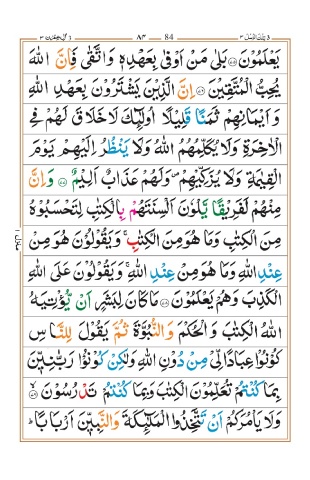 تلك الرسل ٣ 84 ٨٤ ال عمران ٣
يَعْلَمُوْنَ ﴿۷۵﴾ بَلٰى مَنْ اَوْفٰى بِعَهْدِهٖ وَاتَّقٰى فَاِنَّ اللّٰهَ
يُحِبُّ الْمُتَّقِيْنَ ﴿۷۶﴾ اِنَّ الَّذِيْنَ يَشْتَرُوْنَ بِعَهْدِ اللّٰهِ
وَاَيْمَانِهِمْ ثَمَنًا قَلِيْلًا اُولٰٓئِكَ لَا خَلَاقَ لَهُمْ فِى
الْاٰخِرَةِ وَلَا يُكَلِّمُهُمُ اللّٰهُ وَلَا يَنْظُرُ اِلَيْهِمْ يَوْمَ
الْقِيٰمَةِ وَلَا يُزَكِّيْهِمْ ۪ وَلَهُمْ عَذَابٌ اَلِيْمٌ ﴿۷۷﴾ وَاِنَّ
مِنْهُمْ لَفَرِيْقًا يَّلْوٗنَ اَلْسِنَتَهُمْ بِالْكِتٰبِ لِتَحْسَبُوْهُ
مِنَ الْكِتٰبِ وَمَا هُوَ مِنَ الْكِتٰبِ ۚ وَيَقُوْلُوْنَ هُوَ مِنْ
عِنْدِ اللّٰهِ وَمَا هُوَ مِنْ عِنْدِ اللّٰهِ ۚ وَيَقُوْلُوْنَ عَلَى اللّٰهِ
الْكَذِبَ وَهُمْ يَعْلَمُوْنَ ﴿۷۸﴾ مَا كَانَ لِبَشَرٍ اَنْ يُّؤْتِيَهُ
اللّٰهُ الْكِتٰبَ وَالْحُكْمَ وَالنُّبُوَّةَ ثُمَّ يَقُوْلَ لِلنَّاسِ
كُوْنُوْا عِبَادًا لِّىْ مِنْ دُوْنِ اللّٰهِ وَلٰكِنْ كُوْنُوْا رَبّٰنِيّٖنَ
بِمَا كُنْتُمْ تُعَلِّمُوْنَ الْكِتٰبَ وَبِمَا كُنْتُمْ تَدْرُسُوْنَ ۙ﴿۷۹﴾
وَلَا يَاْمُرَكُمْ اَنْ تَتَّخِذُوا الْمَلٰٓئِكَةَ وَالنَّبِيّٖنَ اَرْبَابًا ؕ
منزل ١